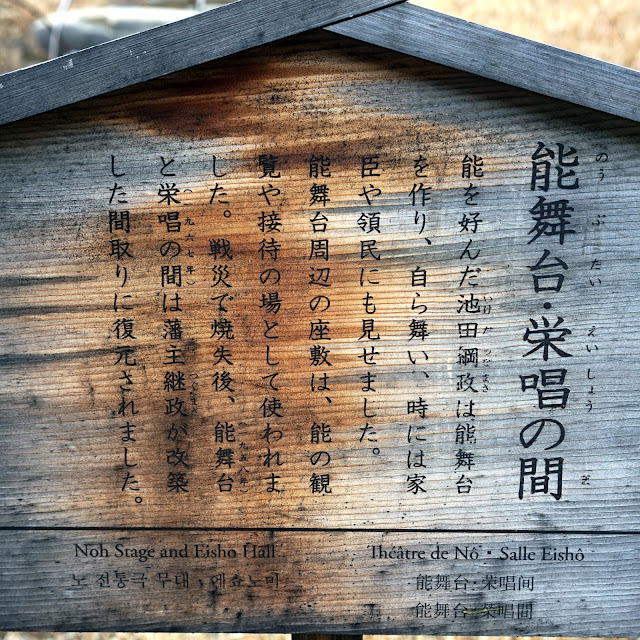 能舞台・栄唱の間
のうぶたい えいしょう ま
能を好んだ池田綱政は能舞台
いけだ つなまさ
を作り、自ら舞い、時には家
臣や領民にも見せました。
能舞台周辺の座敷は、能の観
覧や接待の場として使われま
した。戦災で焼失後、能舞台
(一九五八年)
と栄唱の間は藩主継政が改築
(一九六七年) つぐまさ
した間取りに復元されました。
Noh Stage and Eisho Hall
노 전통극 무대・에쇼노마
Théâtre de Nô・Salle Eishô
能舞台・荣唱间
能舞台・榮唱間